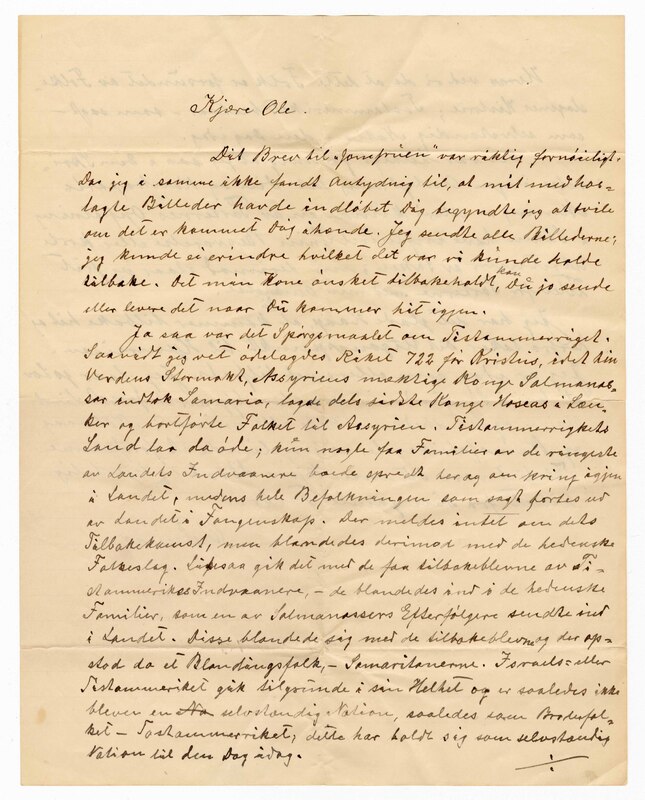 Kjære Ole.
Dit Brev til "Jomfruen" var riktig fornöieligt.
Da jeg i samme ikke fandt Antydnig til, at mit med hos-
lagte Billeder havde indlöbet Dig begyndte jeg at tvile
om det er kommet Dig ihænde. Jeg sendte alle Billederne;
jeg kunde ei erindre hvilket det var vi kunde holde
tilbake. Det min Kone önsket tilbakeholdt, kan Du jo sende
eller levere det naar Du kommer hit igjen.
Ja saa var det Spörgsmaalet om Tistammerriget.
Saavidt jeg vet ödelagdes Riket 722 för Kristus, idet hin
Verdens Stormakt, Assyriens mæktige Konge Salmanas-
sar indtok Samaria, lagde dets sidste Konge Hoseas i Læn-
ker og bortförte Folket til Assyrien. Tistammerrigkets
Land laa da öde; kun nogle faa Familier av de ringeste
av Landets Indvaanere boede spredt her og om kring igjen
i Landet, medens hele Befolkningen som sagt förtes ud
av Landet i Fangenskap. Der meldes intet om dets
Tilbakekomst, men blandedes derimod med de hedenske
Folkeslag. Ligesaa gik det med de faa tilbakeblevne av Ti-
stammerikes Indvaanere, – de blandedes ind i de hedenske
Familier, som en av Salmanassers Efterfölgere sendte ind
i Landet. Disse blandede sig med de tilbakeblevne og der op-
stod da et Blandingsfolk, – Samaritanerne. Israels- eller
Tistammeriket gik tilgrunde i sin Helhet og er saaledes ikke
bleven en No selvstændig Nation, saaledes som Broderfol-
ket – Tostammerriket; dette har holdt sig som selvstændig
Nation til den Dag idag.